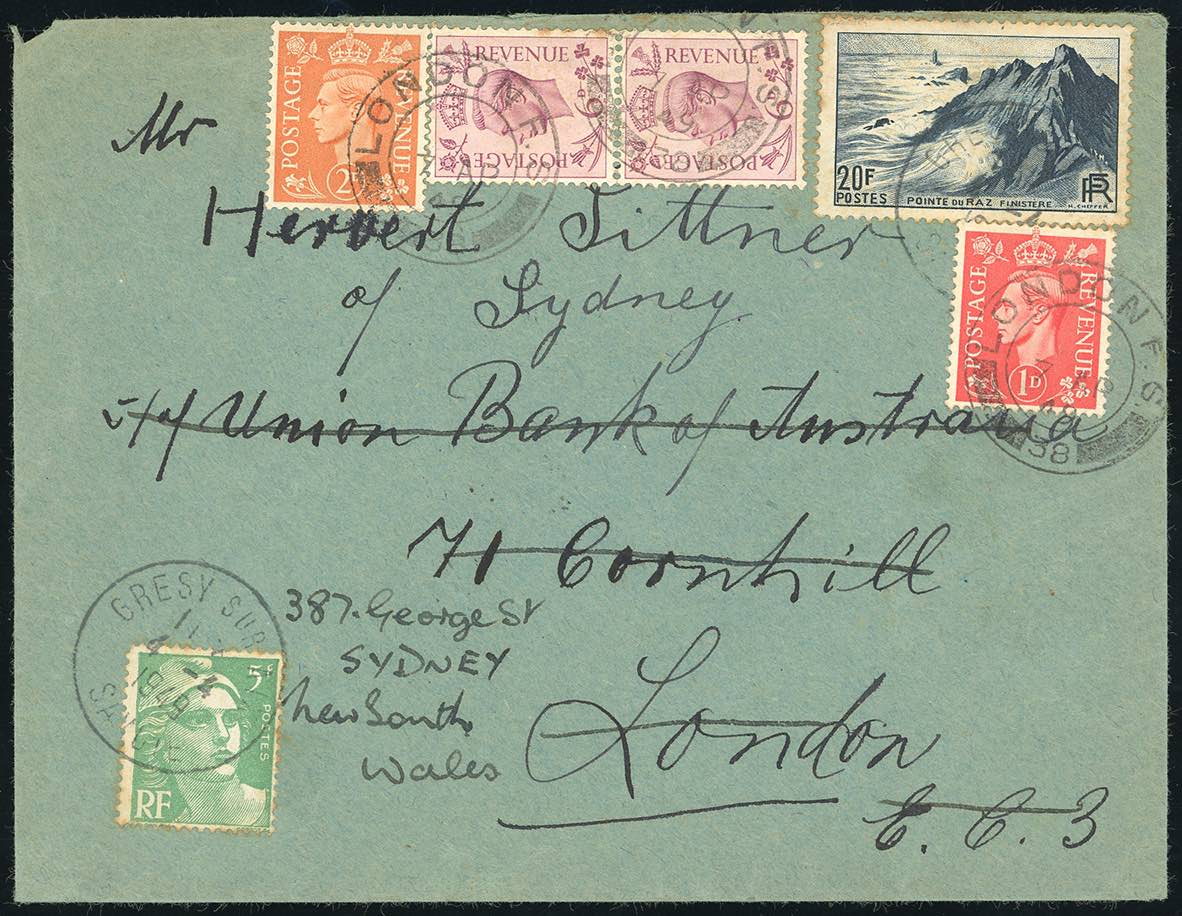 POSTAGE REVENUE
2D
REVENUE
POSTAGE
6D
REVENUE
POSTAGE
6D
20F
POSTES
POINTE DU RAZ FINISTERE
H. CHEFFER
RF
LONDON F.S.
AP
LONDON F.S.
7 AP
48
38
POSTAGE REVENUE
1D
Mr
Herbert Tittner
of Sydney
c/o Union Bank of Australia
71 Cornhill
London
E. C. 3
387. George St
SYDNEY
New South
Wales
GRESY SUR
11 - 4
1948
5F
POSTES
RF